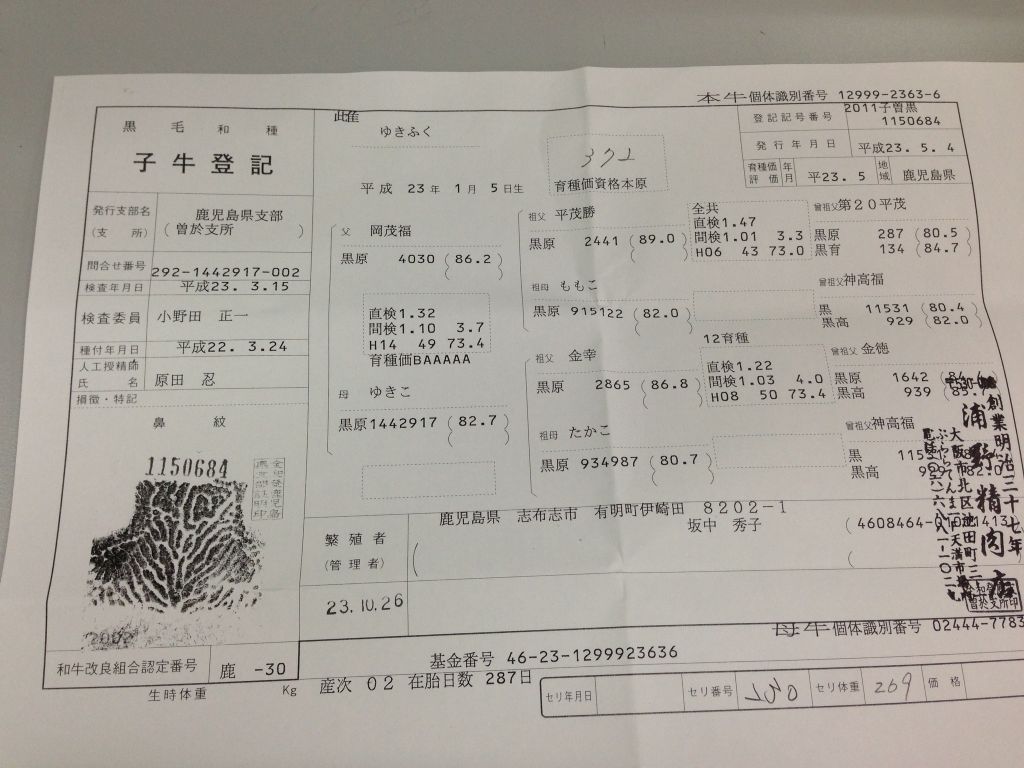 本牛個体識別番号 12999-2363-6
黒毛和種
子牛登記
雌
ゆきふく
平成 23年 1月 5日生
372
育種価資格本原
登記記号番号 2011子曽黒 1150684
発行年月日 平成23. 5. 4
育種価評価 年月 平23. 5 地域 鹿児島県
発行支部名 鹿児島県支部
(支所) (曽於支所)
問合せ番号 292-1442917-002
検査年月日 平成23. 3.15
検査委員 小野田 正一
種付年月日 平成22. 3.24
人工授精師氏名 原田 忍
損徴・特記
鼻紋
1150684
父 岡茂福
黒原 4030 (86.2)
直検1.32
間検1.10 3.7
H14 49 73.4
育種価BAAAAA
母 ゆきこ
黒原1442917 (82.7)
祖父 平茂勝
黒原 2441 (89.0)
全共
直検1.47
間検1.01 3.3
H06 43 73.0
祖母 ももこ
黒原 915122 (82.0)
祖父 金幸
黒原 2865 (86.8)
12育種
直検1.22
間検1.03 4.0
H08 50 73.4
祖母 たかこ
黒原 934987 (80.7)
曾祖父第20平茂
黒原 287 (80.5)
黒育 134 (84.7)
曾祖父神高福
黒 11531 (80.4)
黒高 929 (82.0)
曾祖父 金徳
黒原 1642
黒高 939
曾祖父神高福
黒
黒高
創業明治三十七年
浦野精肉店
大阪市北区池田町三
繁殖者
(管理者)
鹿児島県 志布志市 有明町伊崎田 8202-1
坂中 秀子
(4608464-
23.10.26
曽於支所印
母牛個体識別番号 02444-7783
和牛改良組合認定番号 鹿 -30
基金番号 46-23-1299923636
生時体重 Kg
産次 02 在胎日数 287日
セリ年月日 セリ番号 セリ体重 269 価格